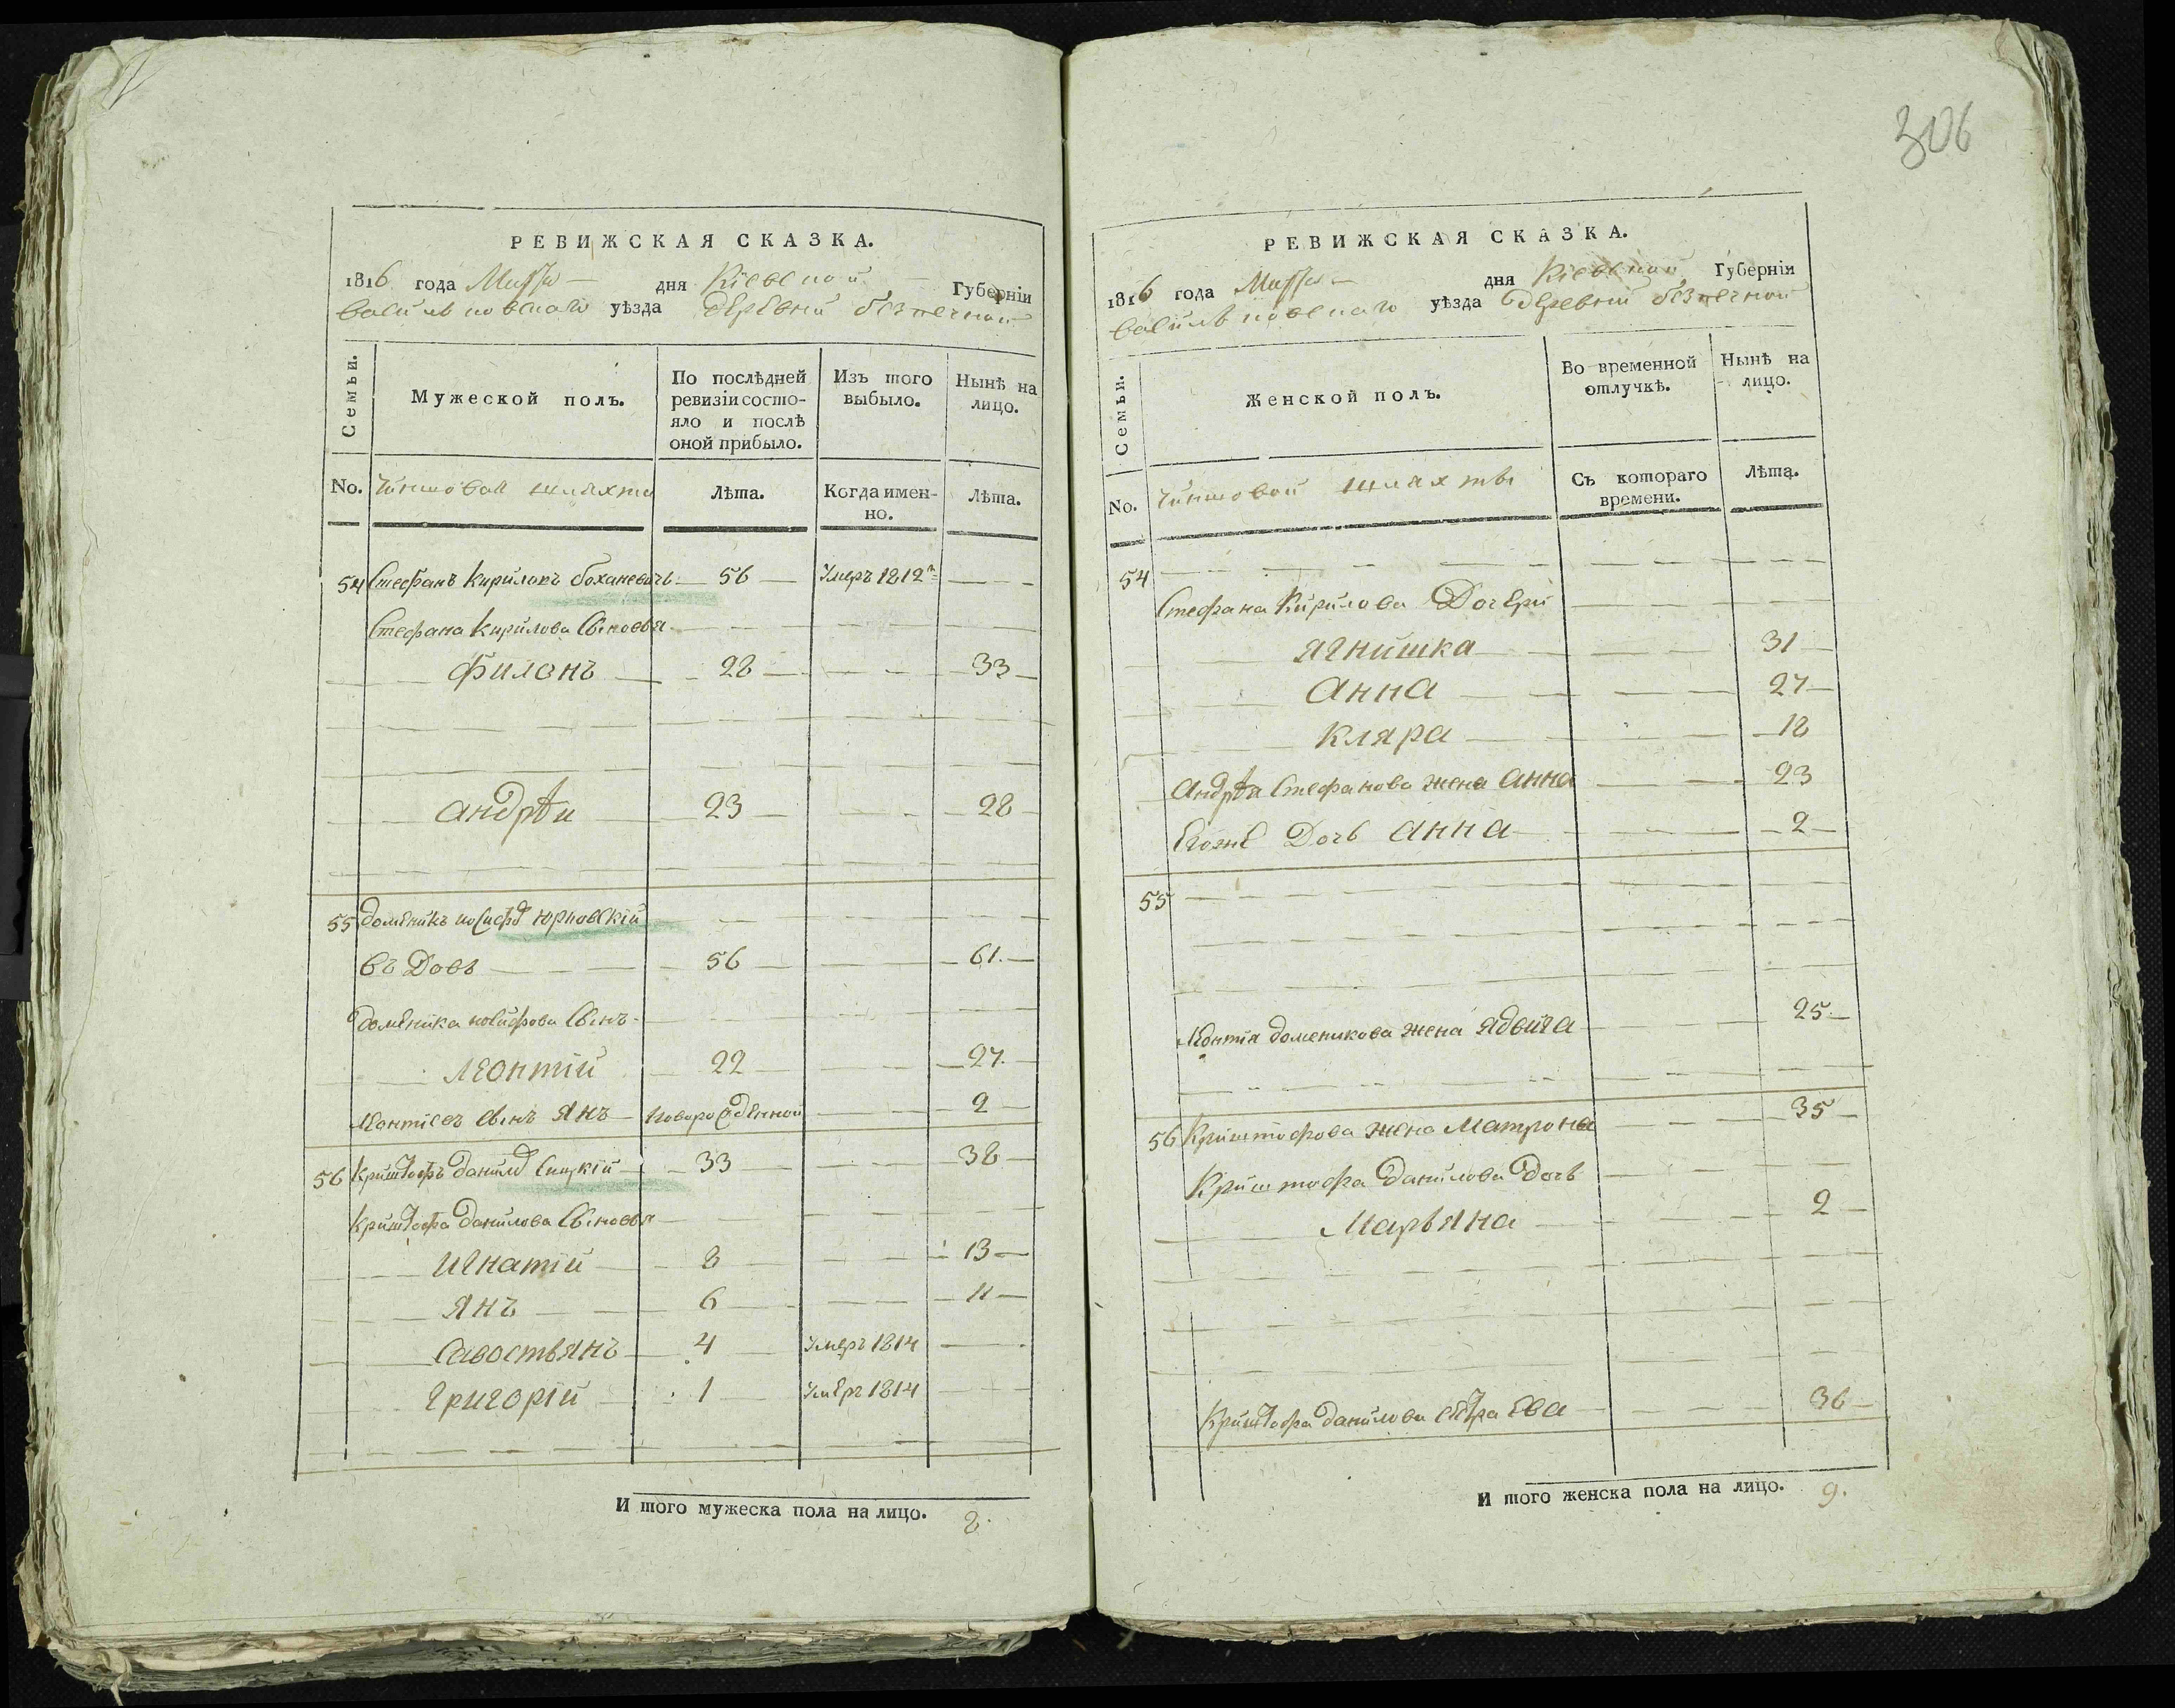 306
РЕВИЖСКАЯ СКАЗКА.
1816 года Марта дня Кіевской Губерніи
васильковскаго уѣзда деревни безпечной
Семьи.
Мужеской полъ.
По послѣдней ревизіи состо-
яло и послѣ
оной прибыло.
Изъ того выбыло.
Нынѣ на лицо.
No. Чиншовая шляхта Лѣта. Когда имен-
но. Лѣта.
54 Стефанъ Кириловъ Боханевичь 56 Умеръ 1812г
Стефана Кирилова Сыновья
Филонъ 28 33
Андрѣи 23 28
55 Доменикъ иосифо Юрковскій
въ Довъ 56 61.
Доменика иосифова Сынъ
Леонтій 22 27.
Леонтіевъ Сынъ Янъ Новорожденной 2
56 Криштофъ Данило Сицкій 33 38
Криштофа Данилова Сыновья
Игнатій 8 13
Янъ 6 11
Савостьянъ 4 Умеръ 1814
Григорій 1 Умеръ 1814
И того мужеска пола на лицо. 8.
РЕВИЖСКАЯ СКАЗКА.
1816 года Марта дня Кіевской Губерніи
васильковскаго уѣзда деревни безпечной
Семьи.
Женской полъ.
Во временной отлучкѣ.
Нынѣ на лицо.
No. Чиншовой шляхты Съ котораго времени. Лѣта.
54
Стефана Кирилова Дочери
Ягнишка 31
Анна 27
Кляра 18
Андрѣя Стефанова жена Анна 23
Егожъ Дочь Анна 2
55
Леонтія Доменикова жена Ядвига 25
56 Криштофова жена Матрона 35
Криштофа Данилова Дочь
Марьяна 2
Криштофа Данилова сестра Ева 36
И того женска пола на лицо. 9.